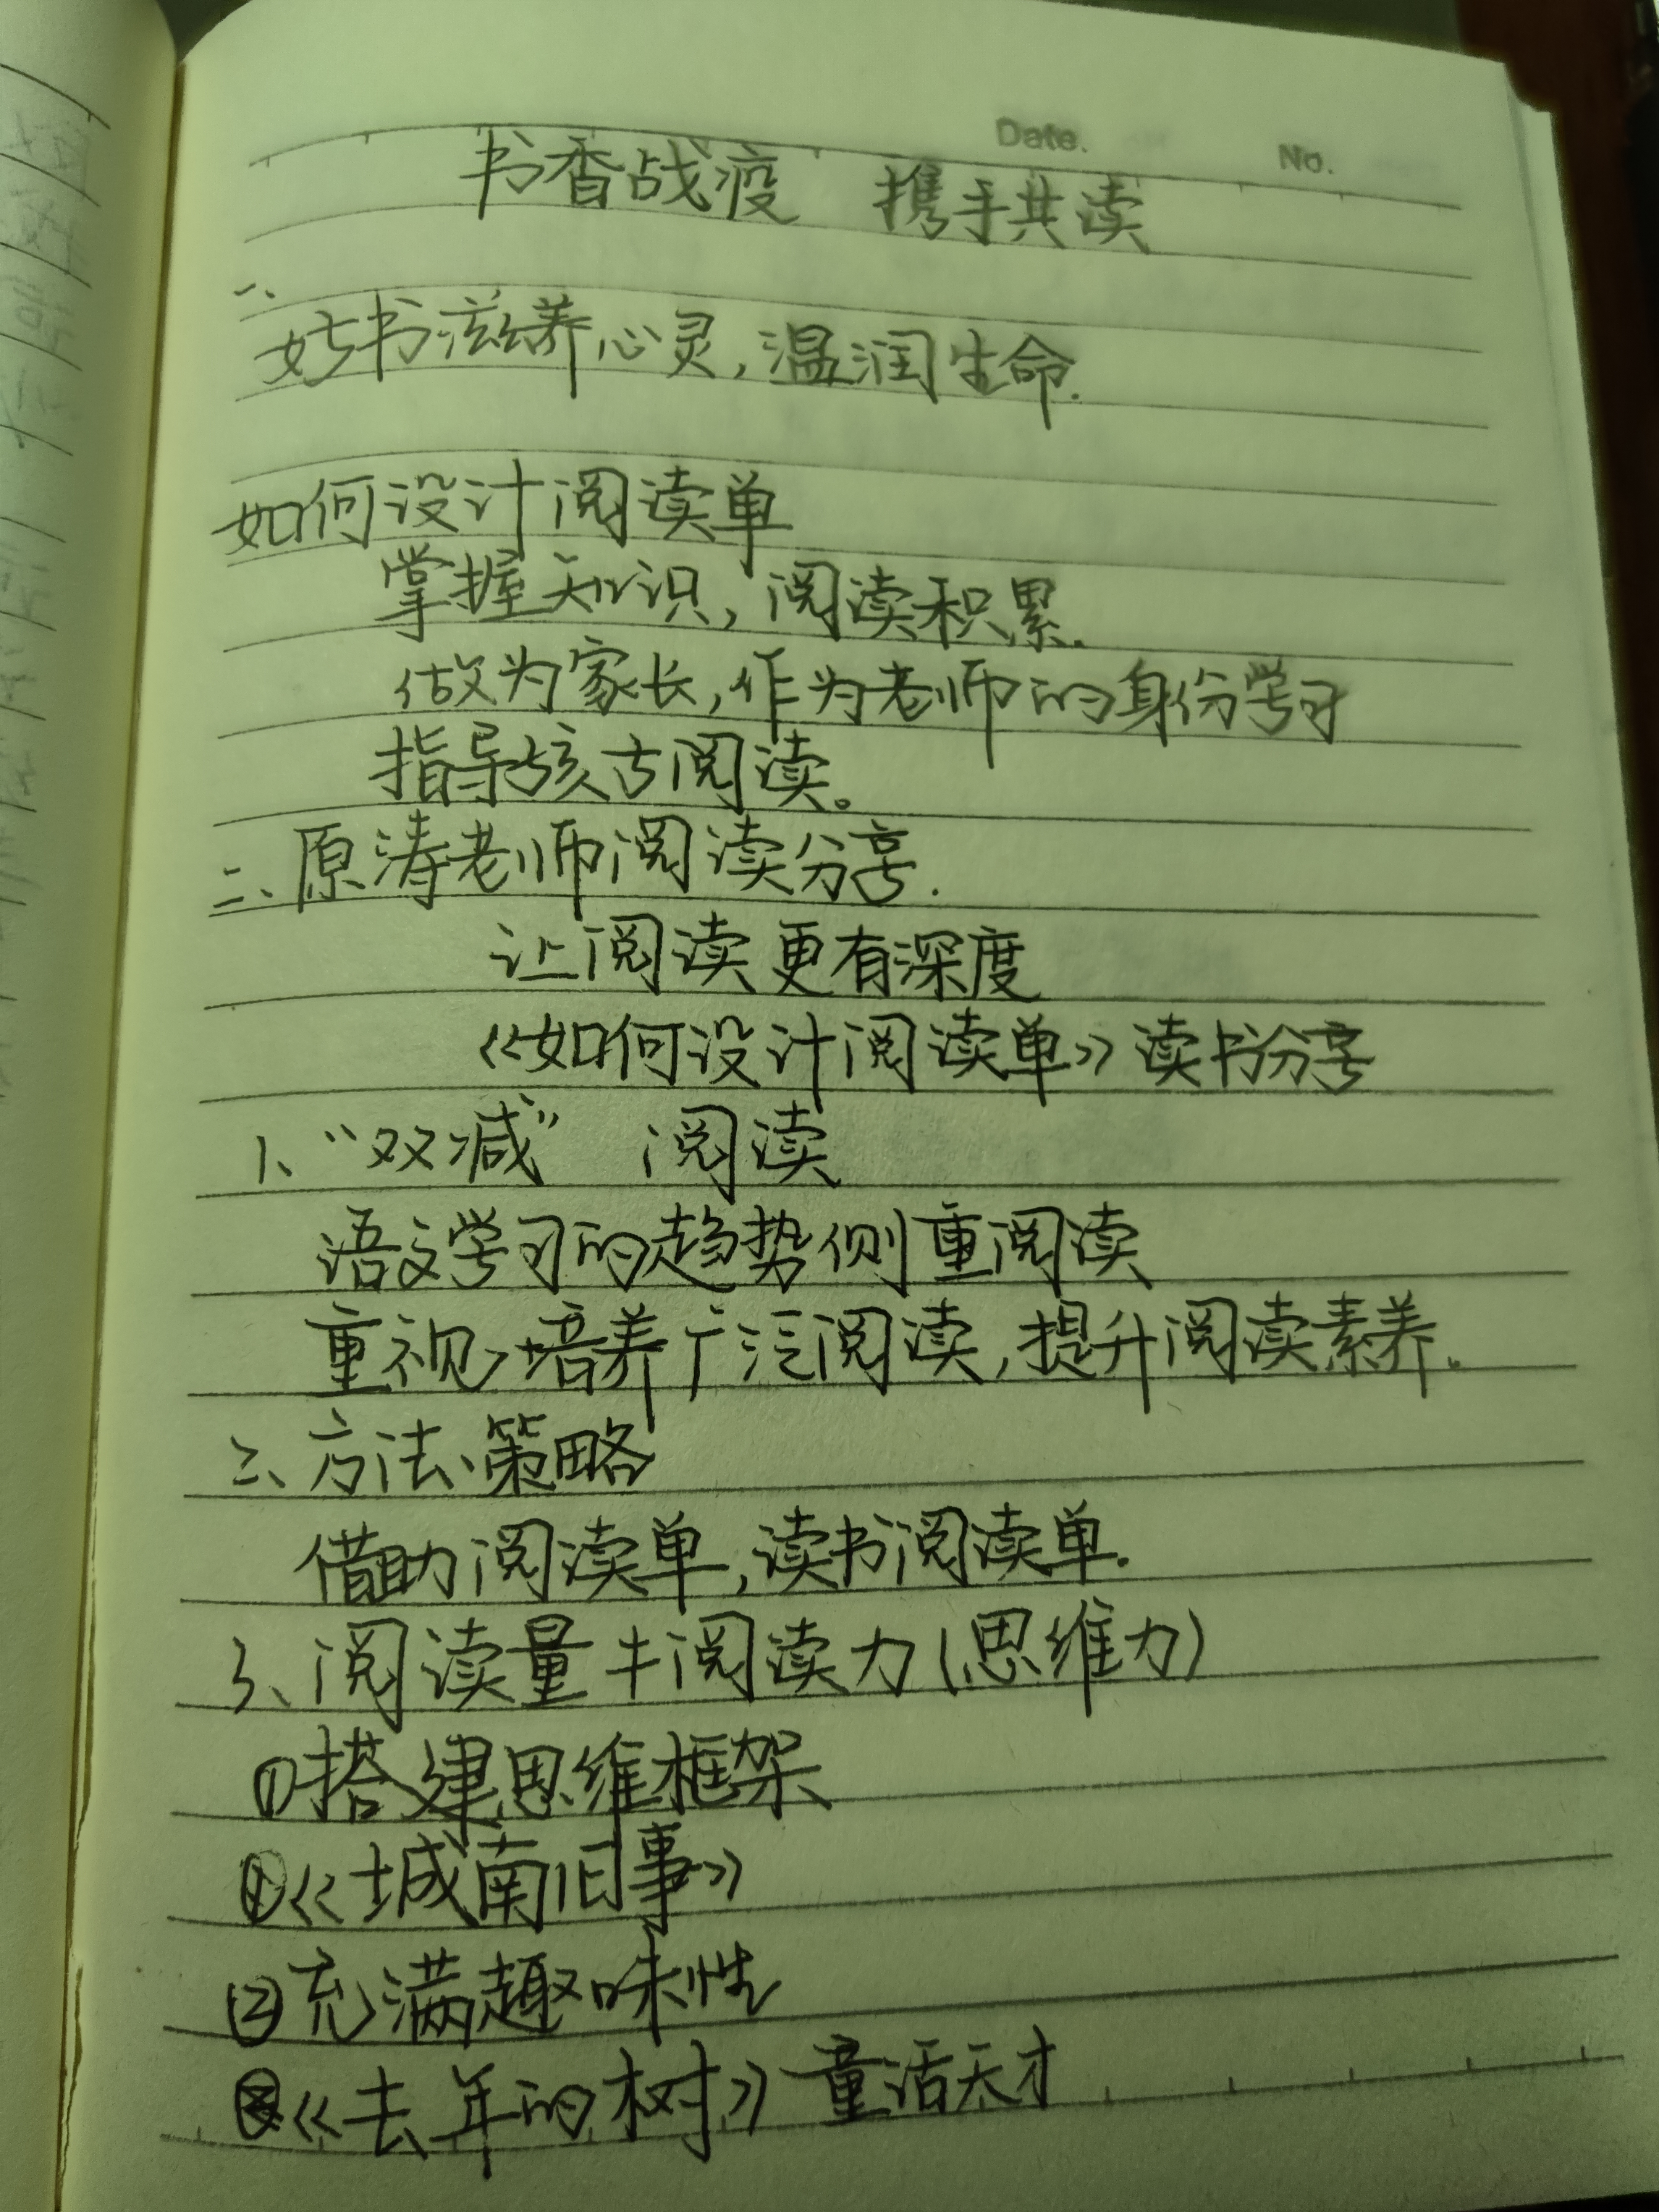 Date.
No.
书香战疫 携手共读
一、
好书滋养心灵,温润生命.
如何设计阅读单
掌握知识,阅读积累.
做为家长,作为老师的身份学习
指导孩古阅读。
二、原涛老师阅读分享.
让阅读更有深度
《如何设计阅读单》读书分享
1、“双减” 阅读
语文学习的趋势侧重阅读
重视,培养广泛阅读,提升阅读素养.
2、方法、策略
借助阅读单,读书阅读单.
3、阅读量≠阅读力(思维力)
①搭建思维框架
①《城南旧事》
②充满趣味性
《去年的树》童话天才